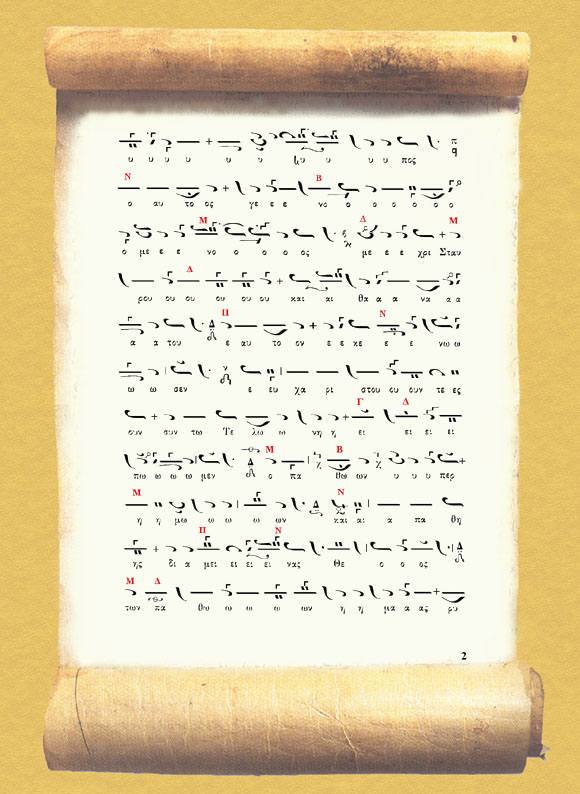 υ υ υ υ υ υ υ υ υ πος
Ν Β
ο αυ το ος γε ε ε νο ο ο ο ο ο ο
Μ Δ Μ
ο με ε ε νο ο ο ο ος με ε ε χρι Σταυ
Δ
ρου ου ου ου ου ου και αι θα α α να α α
Π Ν
α α του ε αυ το ον ε ε κε ε ε νω ω
ω ω σεν ε ευ χα ρι στου ου ουν τε ες
Γ Δ
συν συν τω Τε λω ω νη η ει ει ει ει
Μ Β
πω ω ω ω μεν ο πα θων ων υ υ υ περ
Μ Ν
η η μω ω ω ω ων και αι α πα θη
Π Ν
ης δι α μει ει ει ει νας Θε ο ο ος
Μ Δ
των πα θω ω ω ω ων η η μα α ας ρυ
2